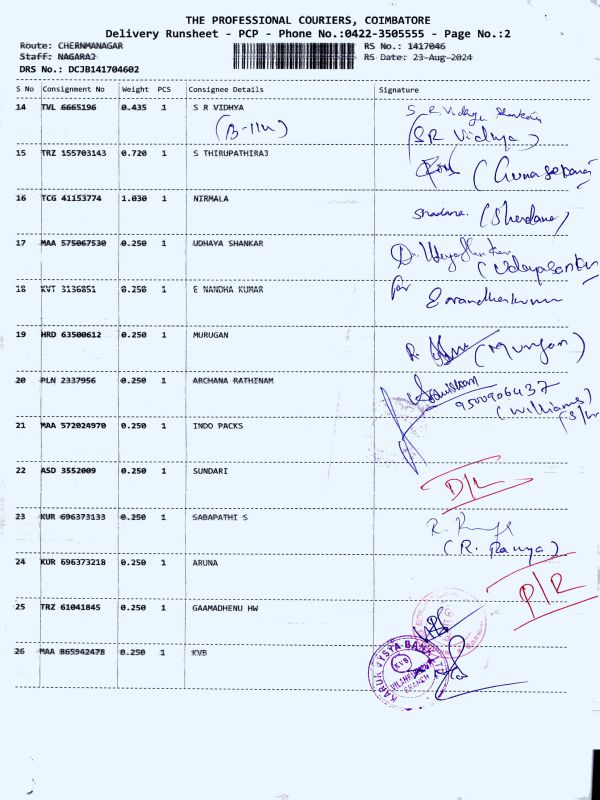 THE PROFESSIONAL COURIERS, COIMBATORE
Delivery Runsheet - PCP - Phone No.:0422-3505555 - Page No.:2
Route: CHERNMANAGAR
RS No.: 1417046
Staff: NAGARAJ
RS Date: 23-Aug-2024
DRS No.: DCJB141704602
S No Consignment No Weight PCS Consignee Details Signature
14 TVL 6665196 0.435 1 S R VIDHYA
(B-114) (SR Vidhya)
15 TRZ 155703143 0.720 1 S THIRUPATHIRAJ (Gunasekaran
16 TCG 41153774 1.030 1 NIRMALA
Shadana. (Shadana)
17 MAA 575067530 0.250 1 UDHAYA SHANKAR
(Udayasankar
18 KVT 3136851 0.250 1 E NANDHA KUMAR
for Enandhakumar
19 HRD 63500612 0.250 1 MURUGAN
R. (Murugan)
20 PLN 2337956 0.250 1 ARCHANA RATHINAM
9500906437
(Williams)
21 MAA 572024970 0.250 1 INDO PACKS
22 ASD 3552009 0.250 1 SUNDARI
D/L
23 KUR 696373133 0.250 1 SABAPATHI S
(R. Ramya)
24 KUR 696373218 0.250 1 ARUNA
P/R
25 TRZ 61041845 0.250 1 GAAMADHENU HW
26 MAA 865942478 0.250 1 KVB
KARUR VYSYA BANK LTD
KVB
BRANCH